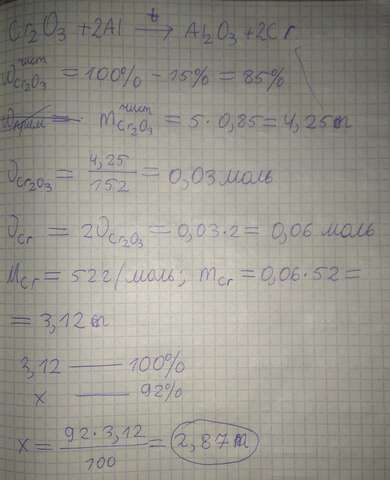 Cr₂O₃ + 2Al —t→ Al₂O₃ + 2Cr
ω чист Cr₂O₃ = 100% - 15% = 85%
m чист Cr₂O₃ = 5 · 0,85 = 4,25т
ν Cr₂O₃ = 4,25/152 = 0,03 моль
ν Cr = 2ν Cr₂O₃ = 0,03 · 2 = 0,06 моль
M Cr = 52г/моль; m Cr = 0,06 · 52 =
= 3,12т
3,12 —— 100%
x —— 92%
x = 92 · 3,12/100 = 2,87т